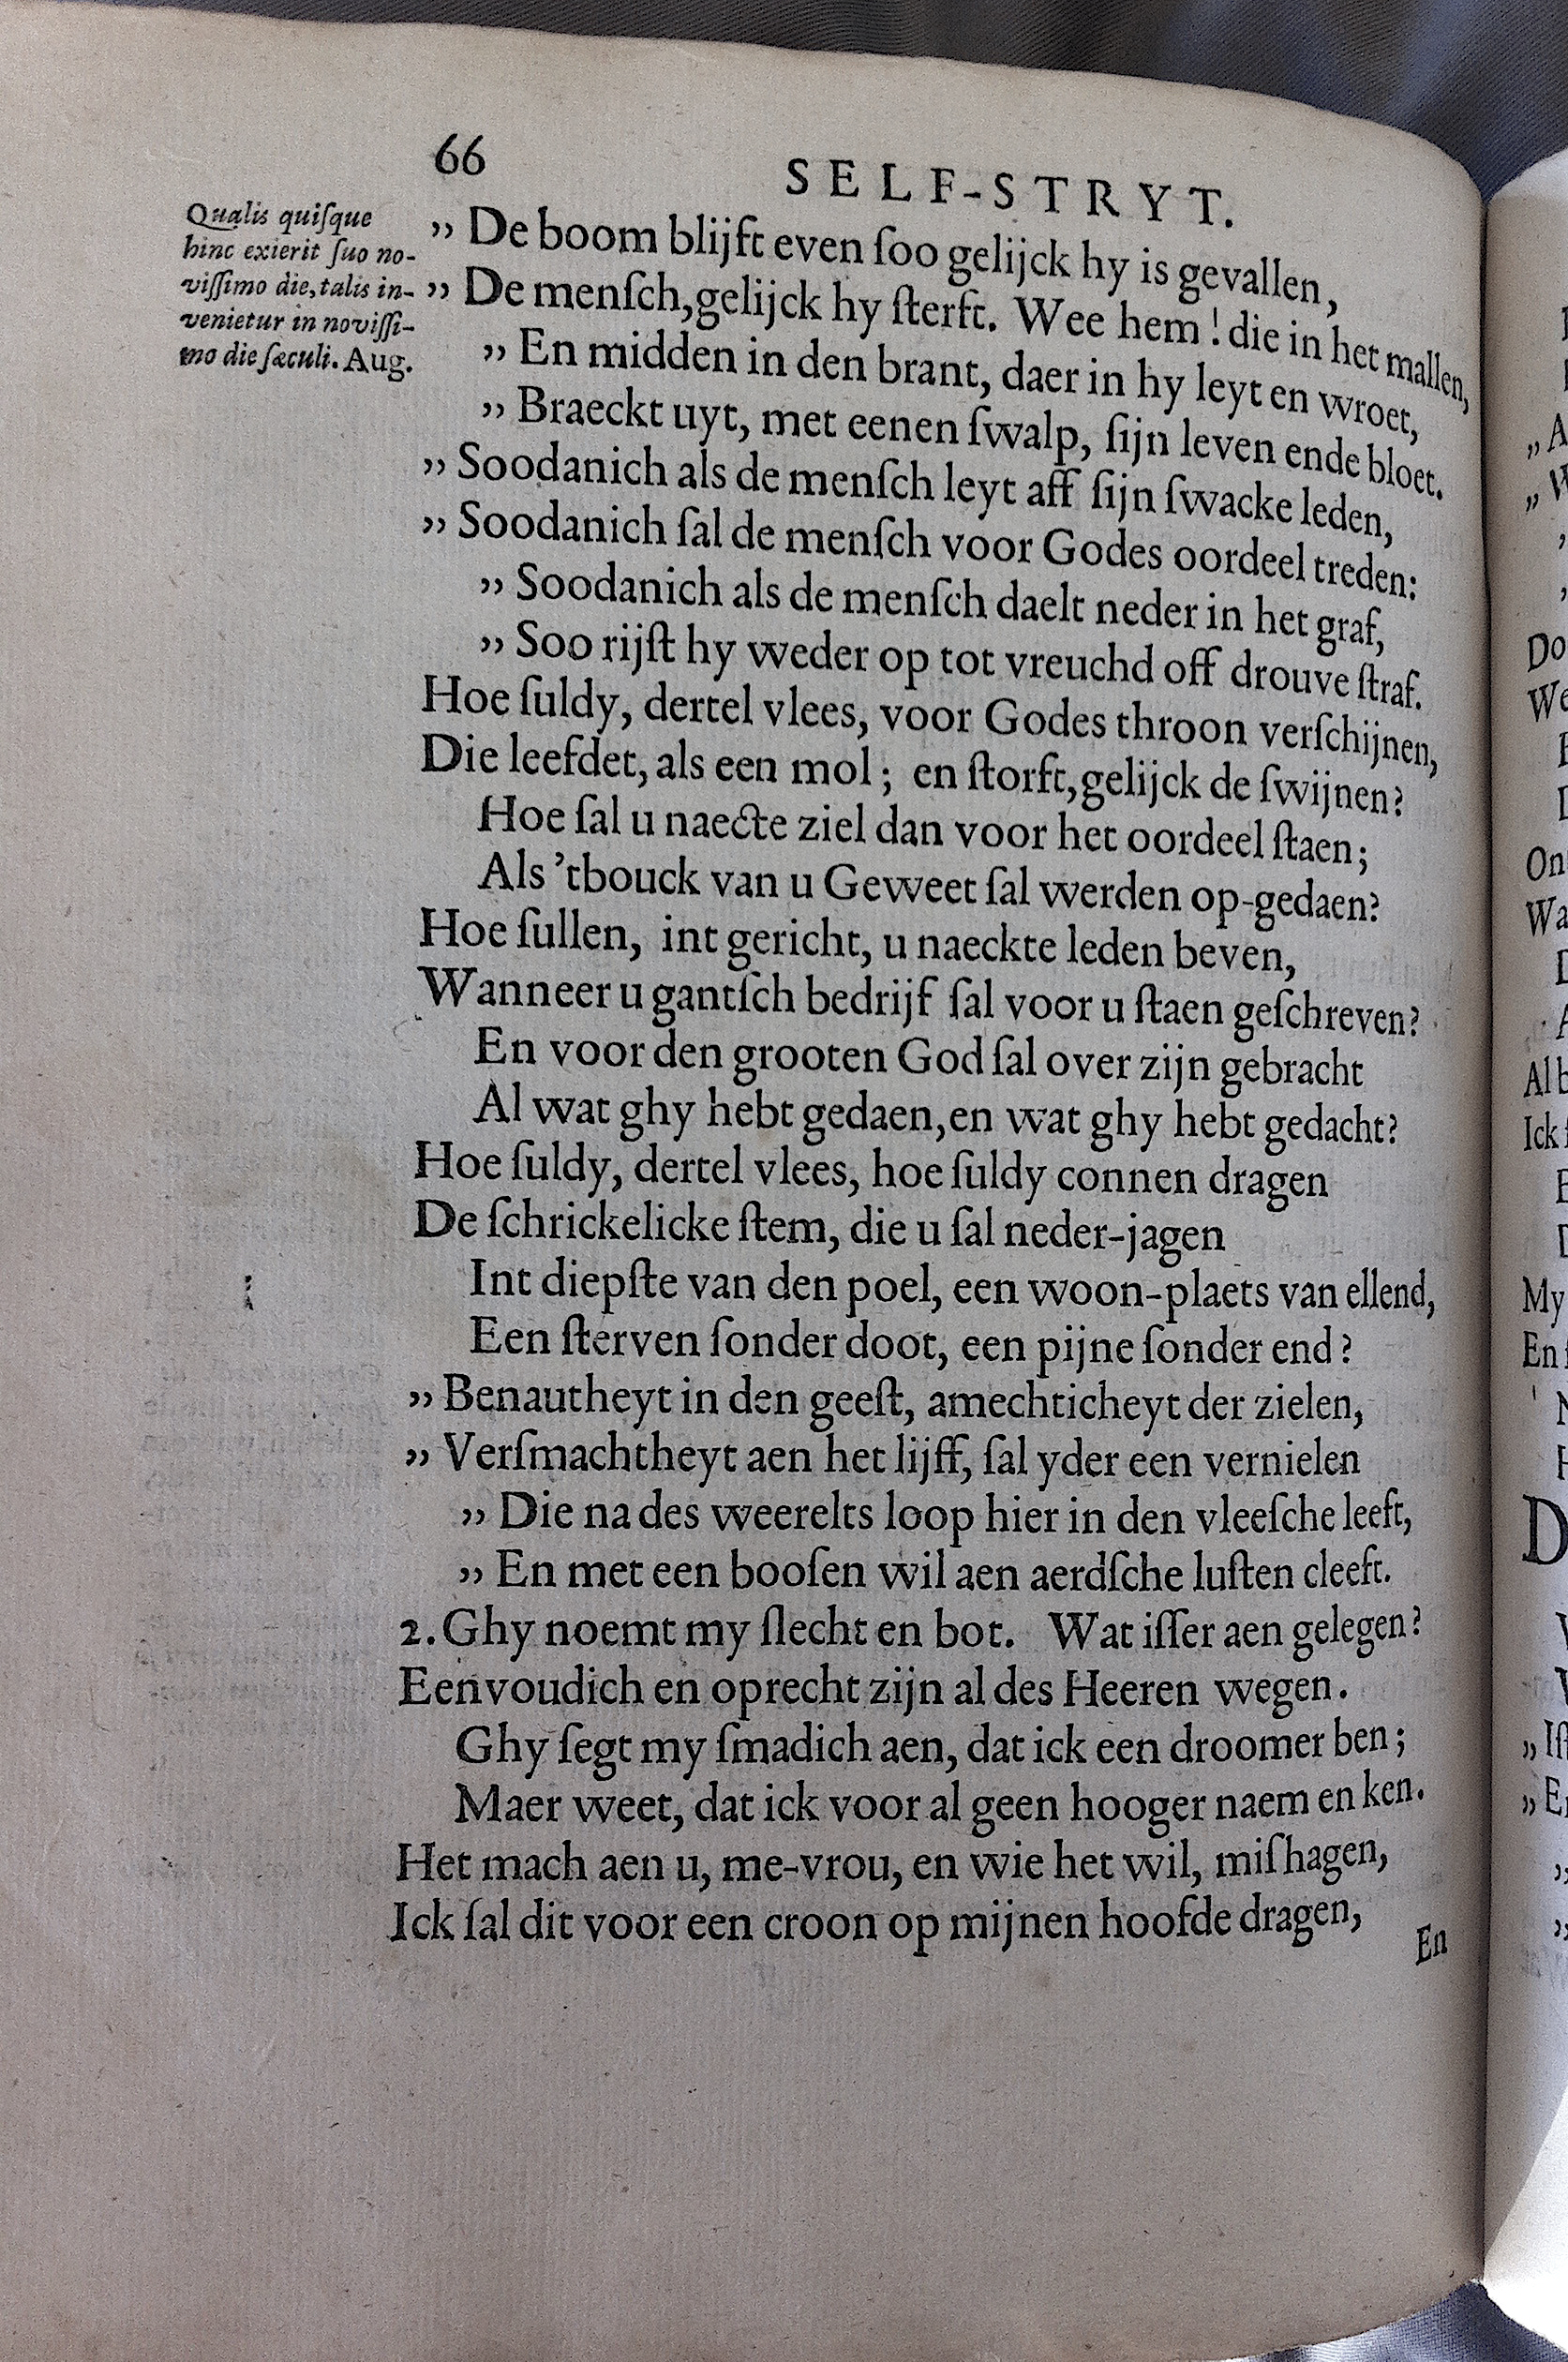 66
SELF-STRYT.
Qualis quiſque
hinc exierit ſuo no-
viſſimo die, talis in-
venietur in noviſſi-
mo die ſæculi. Aug.
„ De boom blijft even ſoo gelijck hy is gevallen,
„ De menſch, gelijck hy ſterft. Wee hem! die in het mallen,
„ En midden in den brant, daer in hy leyt en wroet,
„ Braeckt uyt, met eenen ſwalp, ſijn leven ende bloet.
„ Soodanich als de menſch leyt aff ſijn ſwacke leden,
„ Soodanich ſal de menſch voor Godes oordeel treden:
„ Soodanich als de menſch daelt neder in het graf,
„ Soo rijſt hy weder op tot vreuchd off drouve ſtraf.
Hoe ſuldy, dertel vlees, voor Godes throon verſchijnen,
Die leefdet, als een mol; en ſtorft, gelijck de ſwijnen?
Hoe ſal u naecte ziel dan voor het oordeel ſtaen;
Als 'tbouck van u Geweet ſal werden op-gedaen?
Hoe ſullen, int gericht, u naeckte leden beven,
Wanneer u gantſch bedrijf ſal voor u ſtaen geſchreven?
En voor den grooten God ſal over zijn gebracht
Al wat ghy hebt gedaen, en wat ghy hebt gedacht?
Hoe ſuldy, dertel vlees, hoe ſuldy connen dragen
De ſchrickelicke ſtem, die u ſal neder-jagen
Int diepſte van den poel, een woon-plaets van ellend,
Een ſterven ſonder doot, een pijne ſonder end?
„ Benautheyt in den geeſt, amechticheyt der zielen,
„ Verſmachtheyt aen het lijff, ſal yder een vernielen
„ Die na des weerelts loop hier in den vleeſche leeft,
„ En met een booſen wil aen aerdſche luſten cleeft.
2. Ghy noemt my ſlecht en bot. Wat iſſer aen gelegen?
Eenvoudich en oprecht zijn al des Heeren wegen.
Ghy ſegt my ſmadich aen, dat ick een droomer ben;
Maer weet, dat ick voor al geen hooger naem en ken.
Het mach aen u, me-vrou, en wie het wil, miſhagen,
Ick ſal dit voor een croon op mijnen hoofde dragen,
En